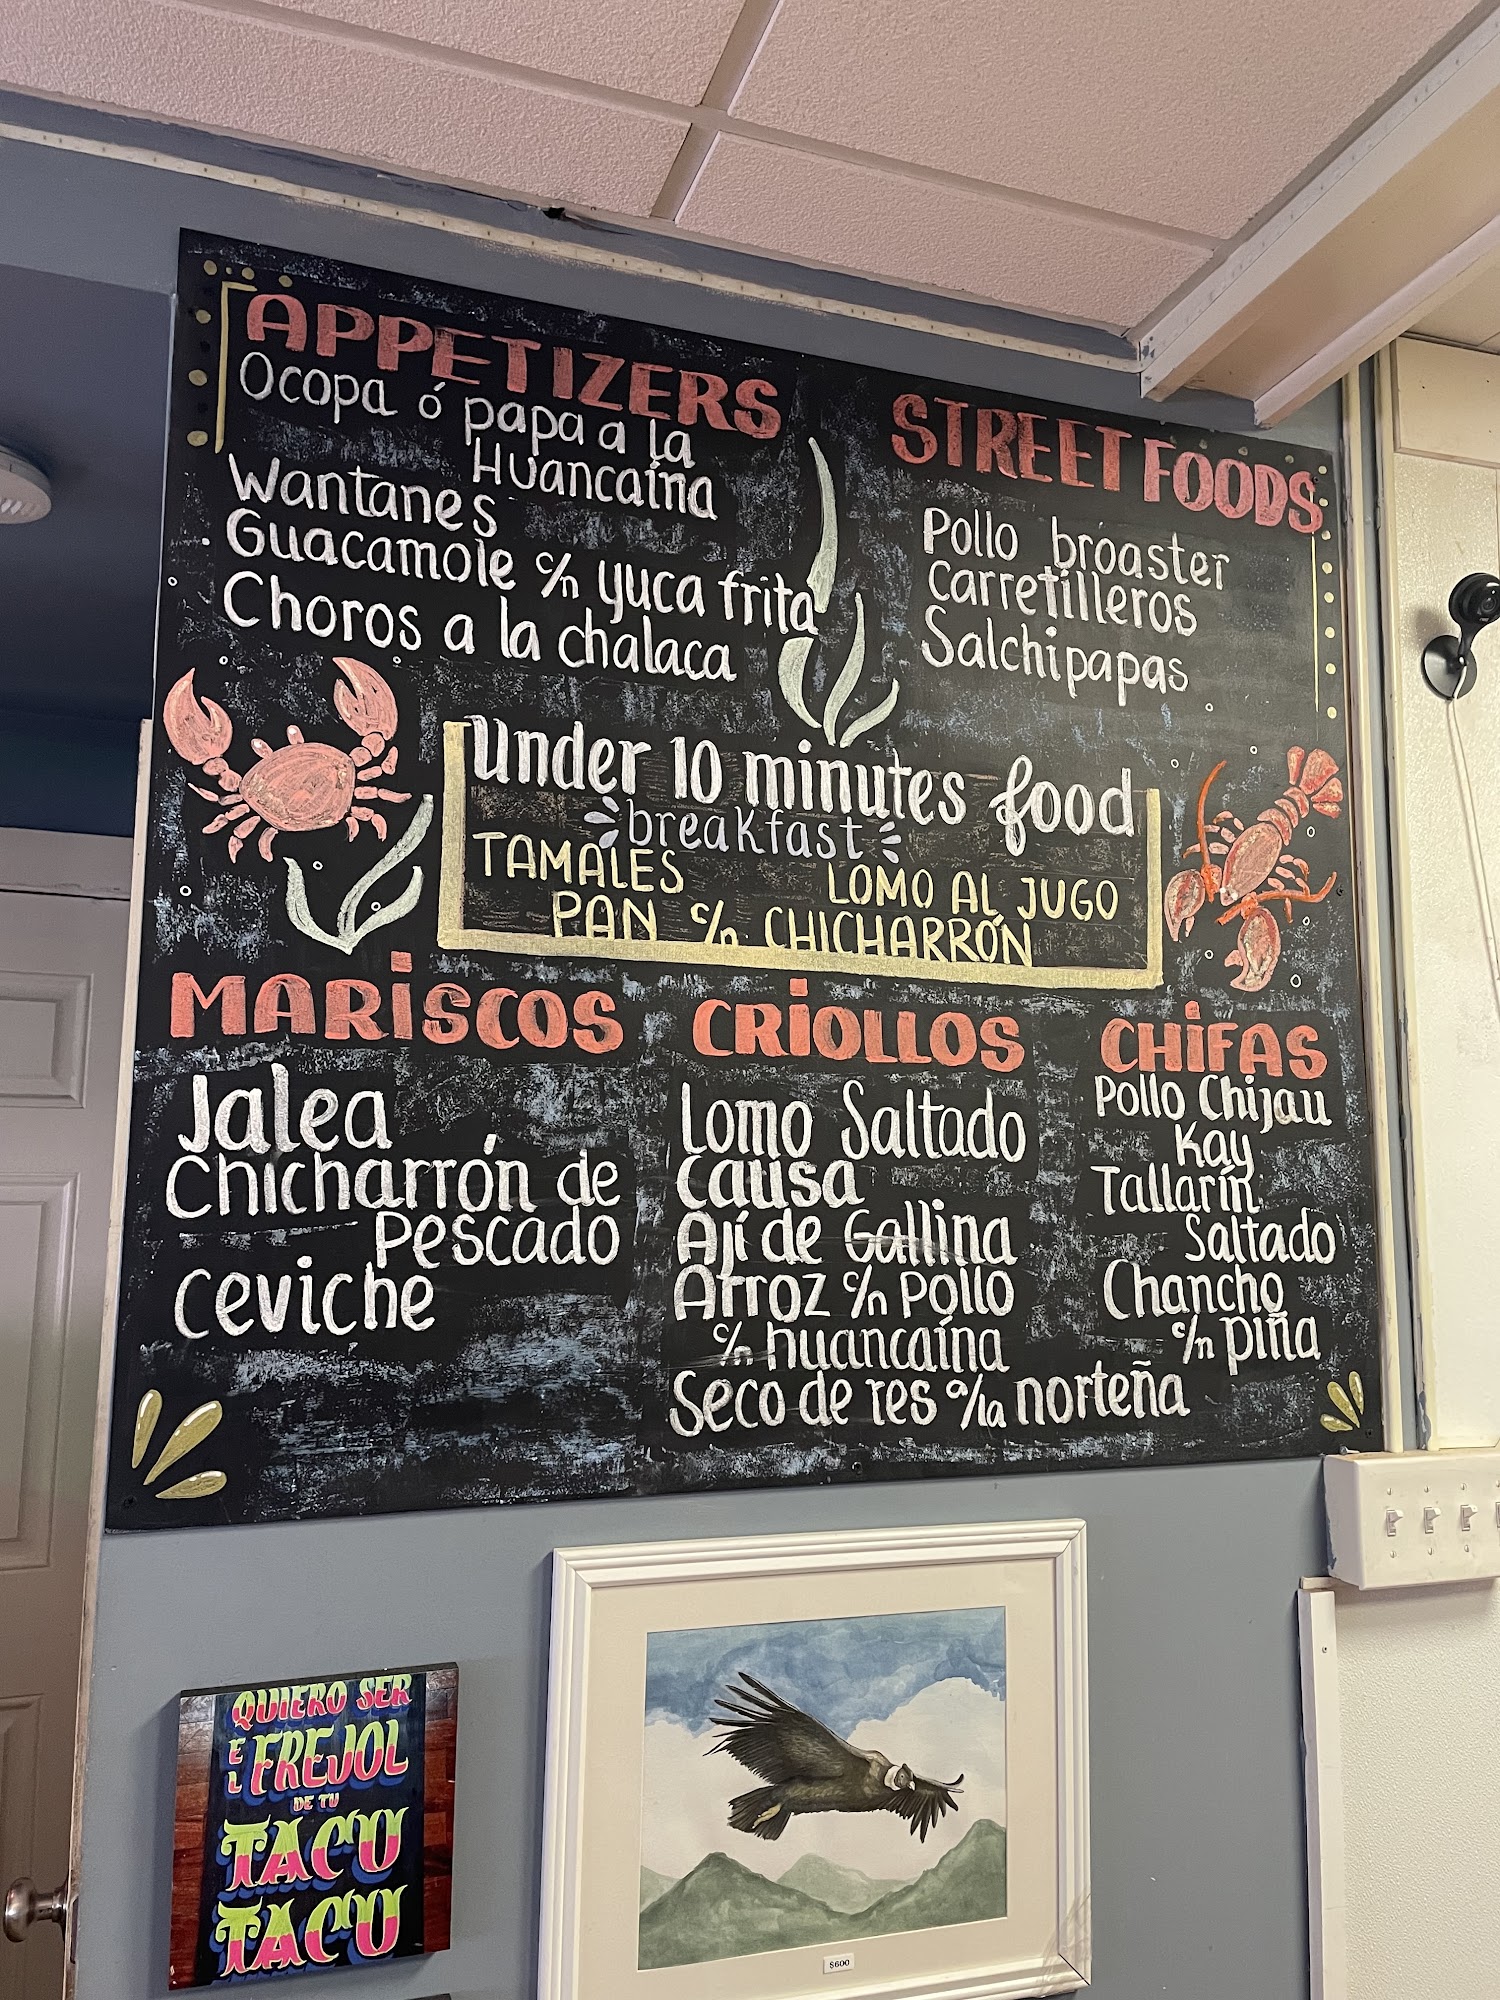 APPETIZERS
Ocopa ó papa a la
Huancaína
Wantanes
Guacamole c/n yuca frita
Choros a la chalaca
STREET FOODS
Pollo broaster
Carretilleros
Salchipapas
Under 10 minutes food
breakfast
TAMALES LOMO AL JUGO
PAN c/n CHICHARRÓN
MARISCOS
Jalea
Chicharrón de
Pescado
Ceviche
CRIOLLOS
Lomo Saltado
Causa
Ají de Gallina
Arroz c/n pollo
c/n huancaína
Seco de res a/la norteña
CHIFAS
Pollo Chijau
Kay
Tallarín
Saltado
Chancho
c/n piña
QUIERO SER
EL FREJOL
DE TU
TACU
TACU
$600